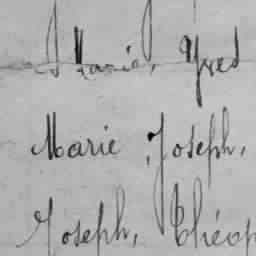 Marie, Yves
Marie Joseph,
Joseph, Théop